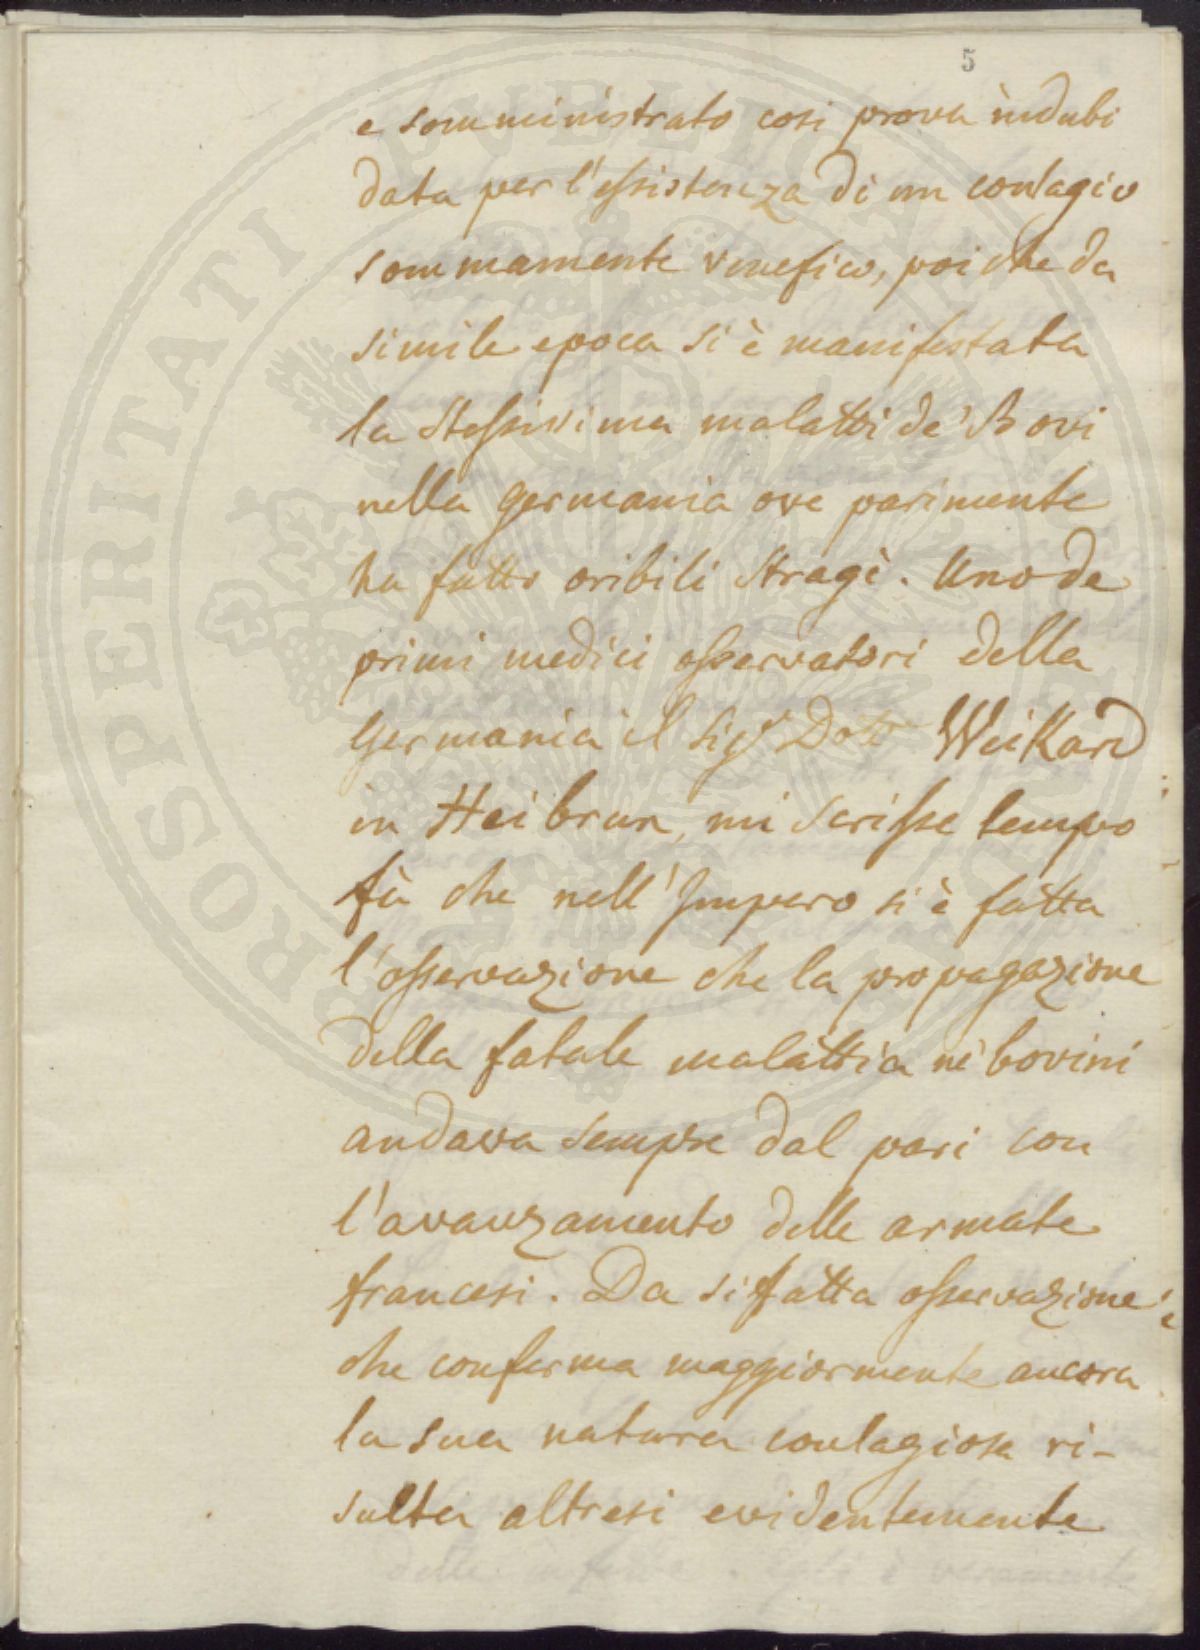 5
e somministrato così prova indubi
data per l'essistenza di un contagio
sommamente venefico, poi che da
simile epoca si è manifestata
la stessissima malatti de' Bovi
nella germania ove parimente
ha fatto oribili stragi. Uno de
primi medici osservatori della
germania il sigr Dottr WeiKard
in Heibrun, mi scrisse tempo
fà che nell'Impero si è fatta
l'osservazione che la propagazione
della fatale malattia ne' bovini
andava sempre dal pari con
l'avanzamento delle armate
francesi. Da si fatta osservazione
che conferma maggiormente ancora
la sua natura contagiosa ri-
sulta altresi evidentemente
PUBLICAE
PROSPERITATI